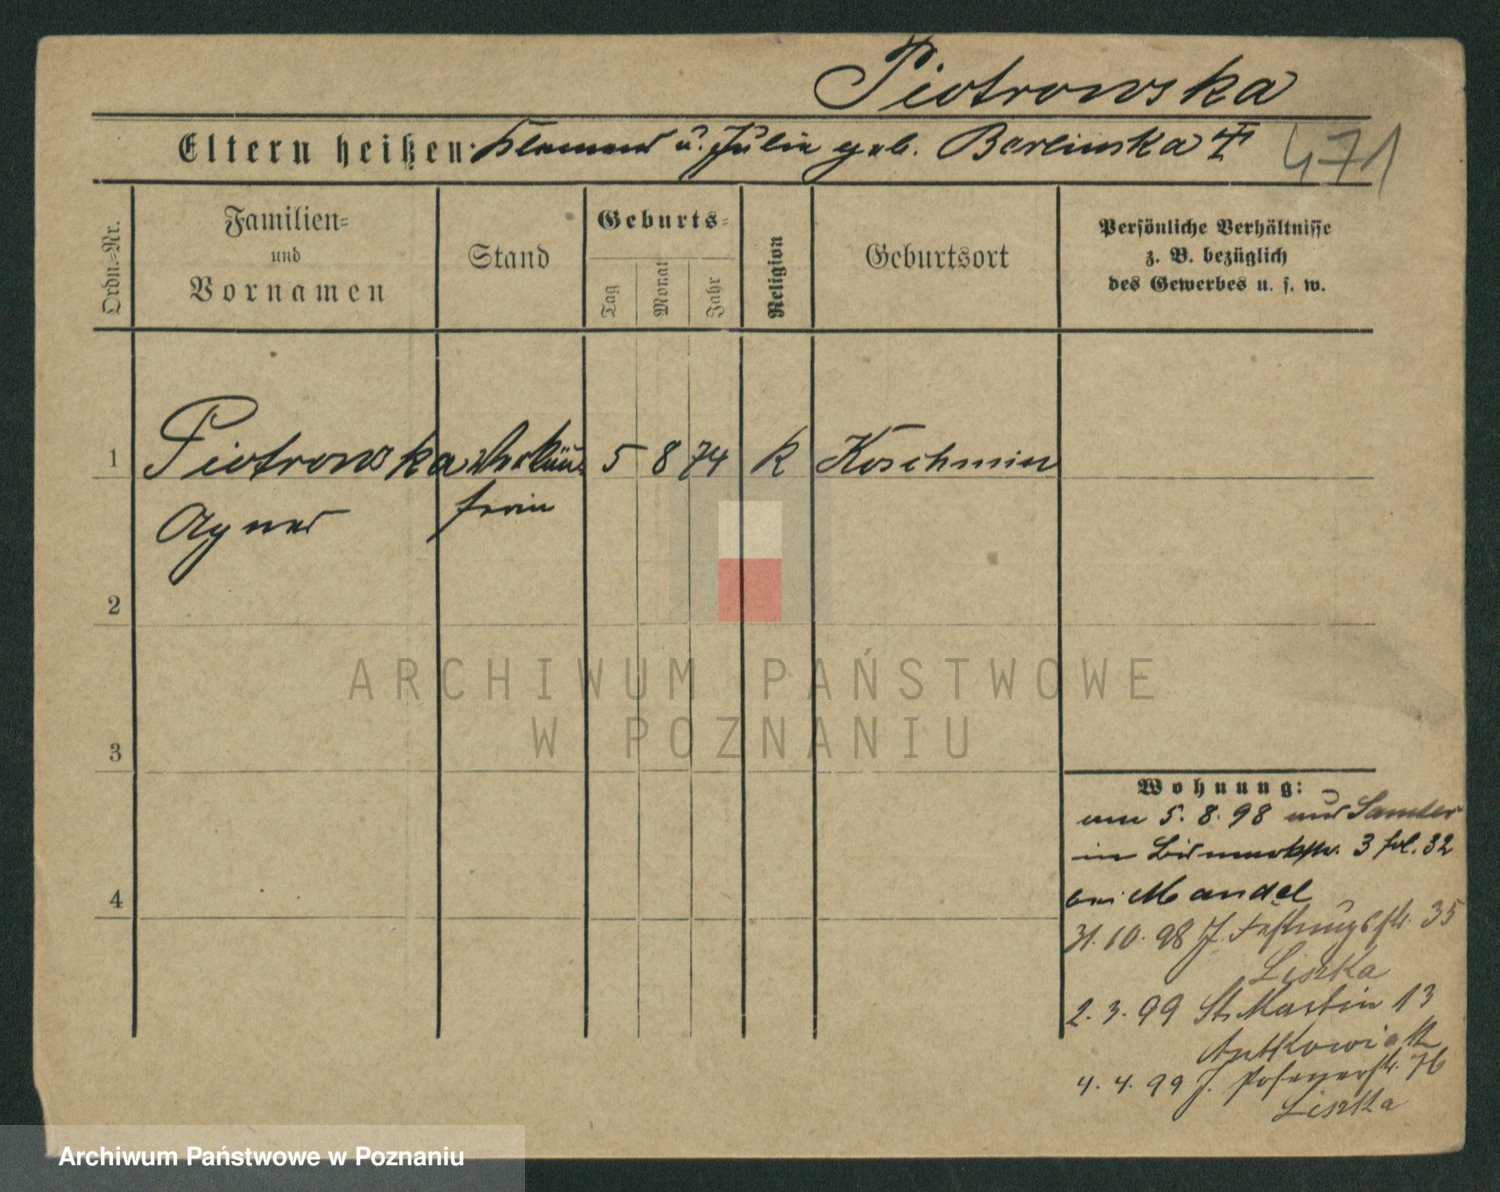 Piotrowska
Eltern heißen: Klemens u. Julie geb. Berlinska ††
471
Ordn.=Nr.
Familien=
und
Vornamen
Stand
Geburts=
Tag
Monat
Jahr
Religion
Geburtsort
Persönliche Verhältnisse
z. B. bezüglich
des Gewerbes u. s. w.
1 Piotrowska Verkäu- 5 8 74 K Koschmin
Agnes ferin
2
3
4
ARCHIWUM PAŃSTWOWE
W POZNANIU
Wohnung:
am 5. 8. 98 aus Samter
in Bismarkstr. 3 fol. 32
bei Mandel
31. 10. 98 J. Festungsstr. 35
Liszka
2. 3. 99 St. Martin 13
Antkowiak
4. 4. 99 J. Posenerstr. 76
Liszka
Archiwum Państwowe w Poznaniu